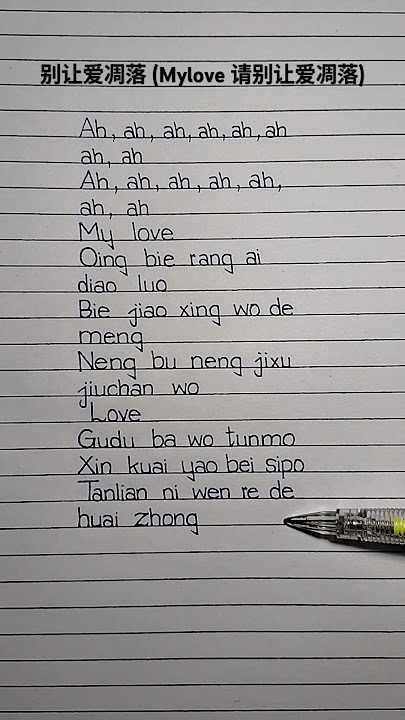 别让爱凋落 (Mylove 请别让爱凋落)
Ah, ah, ah, ah, ah, ah
ah, ah
Ah, ah, ah, ah, ah,
ah, ah
My love
Qing bie rang ai
diao luo
Bie jiao xing wo de
meng
Neng bu neng jixu
jiuchan wo
Love
Gudu ba wo tunmo
Xin kuai yao bei sipo
Tanlian ni wen re de
huai zhong